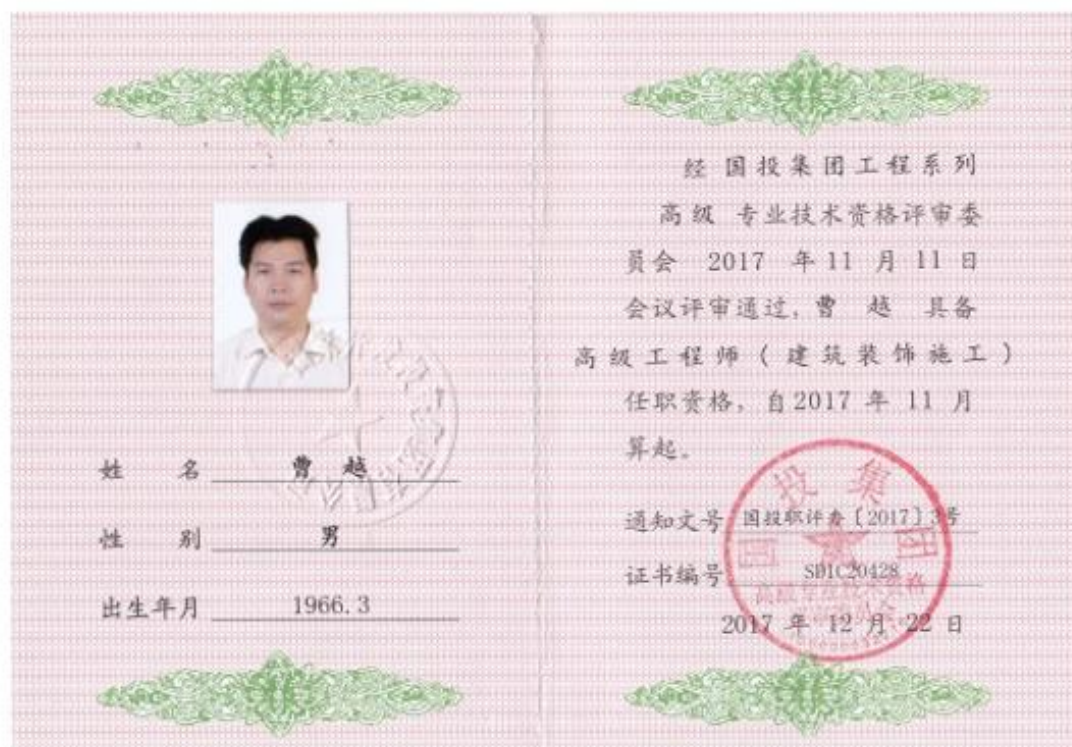 姓 名 曹 越
性 别 男
出生年月 1966.3
经 国投集团工程系列
高级 专业技术资格评审委
员会 2017 年 11 月 11 日
会议评审通过, 曹 越 具备
高级工程师(建筑装饰施工)
任职资格, 自 2017 年 11 月
算起。
通知文号 国投职评办〔2017〕3号
证书编号 SDIC20428
2017 年 12 月 22 日
国投集团
高级专业技术资格